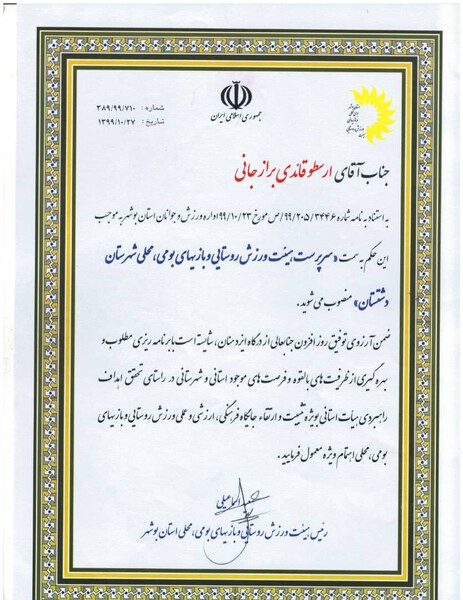 جمهوری اسلامی ایران
شماره : ۳۸۹/۹۹/۷۱۰
تاریخ : ۱۳۹۹/۱۰/۲۷
جناب آقای ارسطو قائدی برازجانی
به استناد به نامه شماره ۹۹/۲۰۵/۳۴۴۶/ص مورخ ۹۹/۱۰/۲۳ اداره ورزش و جوانان استان بوشهر به موجب
این حکم به سمت «سرپرست هیئت ورزش روستایی و بازیهای بومی، محلی شهرستان
دشتستان» منصوب می شوید.
ضمن آرزوی توفیق روز افزون جنابعالی از درگاه ایزد منان، شایسته است با برنامه ریزی مطلوب و
بهره گیری از ظرفیت های بالقوه و فرصت های موجود استانی و شهرستانی در راستای تحقق اهداف
راهبردی هیأت استانی بویژه تثبیت و ارتقاء جایگاه فرهنگی، ارزشی و عملی ورزش روستایی و بازیهای
بومی، محلی اهتمام ویژه معمول فرمایید.
اسماعیلی
رئیس هیئت ورزش روستایی و بازیهای بومی، محلی استان بوشهر